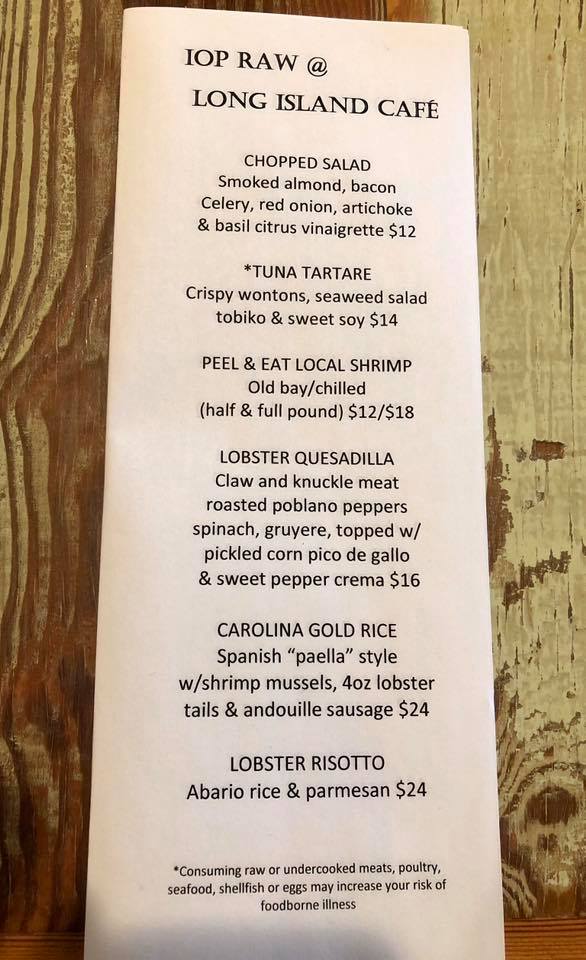 IOP RAW @
LONG ISLAND CAFÉ
CHOPPED SALAD
Smoked almond, bacon
Celery, red onion, artichoke
& basil citrus vinaigrette $12
*TUNA TARTARE
Crispy wontons, seaweed salad
tobiko & sweet soy $14
PEEL & EAT LOCAL SHRIMP
Old bay/chilled
(half & full pound) $12/$18
LOBSTER QUESADILLA
Claw and knuckle meat
roasted poblano peppers
spinach, gruyere, topped w/
pickled corn pico de gallo
& sweet pepper crema $16
CAROLINA GOLD RICE
Spanish “paella” style
w/shrimp mussels, 4oz lobster
tails & andouille sausage $24
LOBSTER RISOTTO
Abario rice & parmesan $24
*Consuming raw or undercooked meats, poultry,
seafood, shellfish or eggs may increase your risk of
foodborne illness